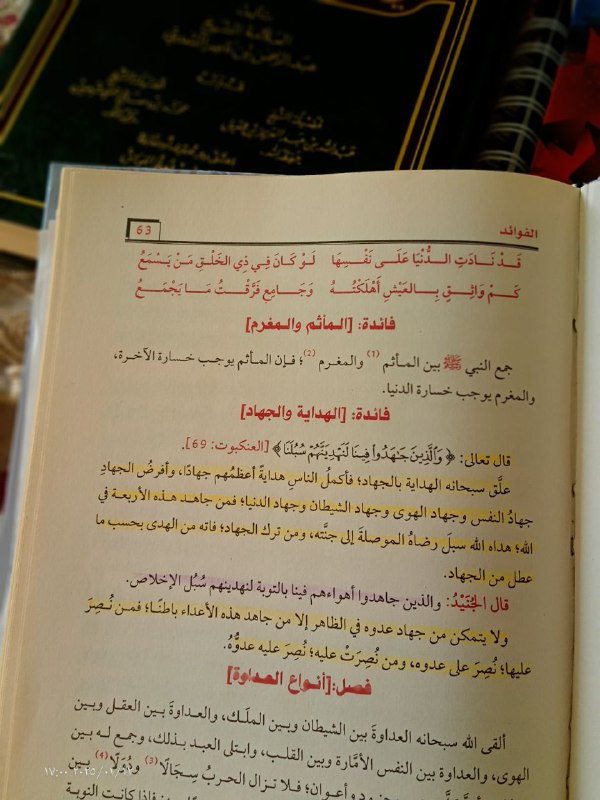 تأليف
العلامة الشيخ
عبد الرحمن بن ناصر السعدي
قدم له
فضيلة الشيخ
فضيلة الشيخ
الفوائد
63
قَدْ نَادَتِ الدُّنْيَا عَلَى نَفْسِهَا لَوْ كَانَ فِي ذِي الخَلْقِ مَنْ يَسْمَعُ
كَمْ وَاثِقٍ بِالعَيْشِ أَهْلَكْتُهُ وَجَامِعٍ فَرَّقْتُ مَا يَجْمَعُ
فائدة: [المأثم والمغرم]
جمع النبي ﷺ بين المأثم (1) والمغرم (2)؛ فإن المأثم يوجب خسارة الآخرة،
والمغرم يوجب خسارة الدنيا.
فائدة: [الهداية والجهاد]
قال تعالى: ﴿وَٱلَّذِينَ جَٰهَدُواْ فِينَا لَنَهۡدِيَنَّهُمۡ سُبُلَنَا﴾ [العنكبوت: 69].
علَّق سبحانه الهداية بالجهاد؛ فأكملُ الناسِ هدايةً أعظمُهم جهادًا، وأفرضُ الجهادِ
جهادُ النفس وجهاد الهوى وجهاد الشيطان وجهاد الدنيا؛ فمن جاهد هذه الأربعة في
الله؛ هداه الله سبلَ رضاهُ الموصلةَ إلى جنَّته، ومن ترك الجهاد؛ فاته من الهدى بحسب ما
عطل من الجهاد.
قال الجُنَيْدُ: والذين جاهدوا أهواءهم فينا بالتوبة لنهدينهم سُبُل الإخلاص.
ولا يتمكن من جهاد عدوه في الظاهر إلا من جاهد هذه الأعداء باطنًا؛ فمن نُصِرَ
عليها؛ نُصِرَ على عدوه، ومن نُصِرَتْ عليه؛ نُصِرَ عليه عدوُّهُ.
فصل: [أنواع العداوة]
ألقى الله سبحانه العداوةَ بين الشيطان وبين الملَك، والعداوةَ بين العقل وبين
الهوى، والعداوة بين النفس الأمَّارة وبين القلب، وابتلى العبد بذلك، وجمع له بين
جنود وأعوان؛ فلا تزال الحربُ سِجَالًا (3) ودُوَلًا (4) بين
فإذا كانت النوبة